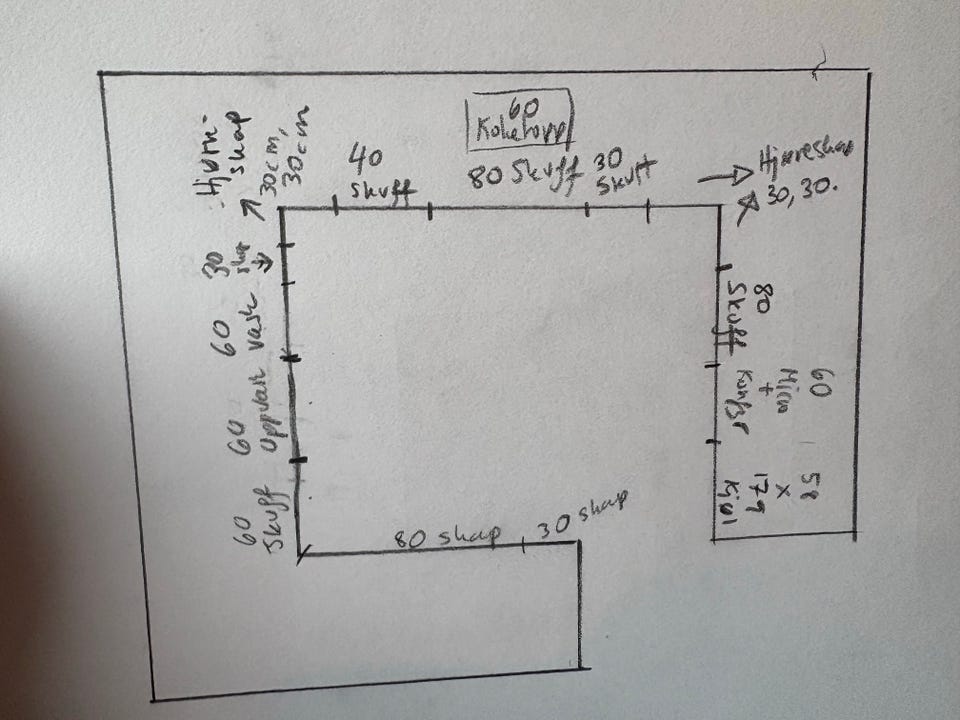 Hjørne-
skap
30cm,
30cm
40
skuff
60
Koketopp
80 Skuff
30
Skuff
Hjørneskap
30, 30.
30
skap
60
vask
60
Oppvask
60
Skuff
80
Skuff
60
Micro
+
Komfyr
58
x
179
Kjøl
80 skap
30 skap